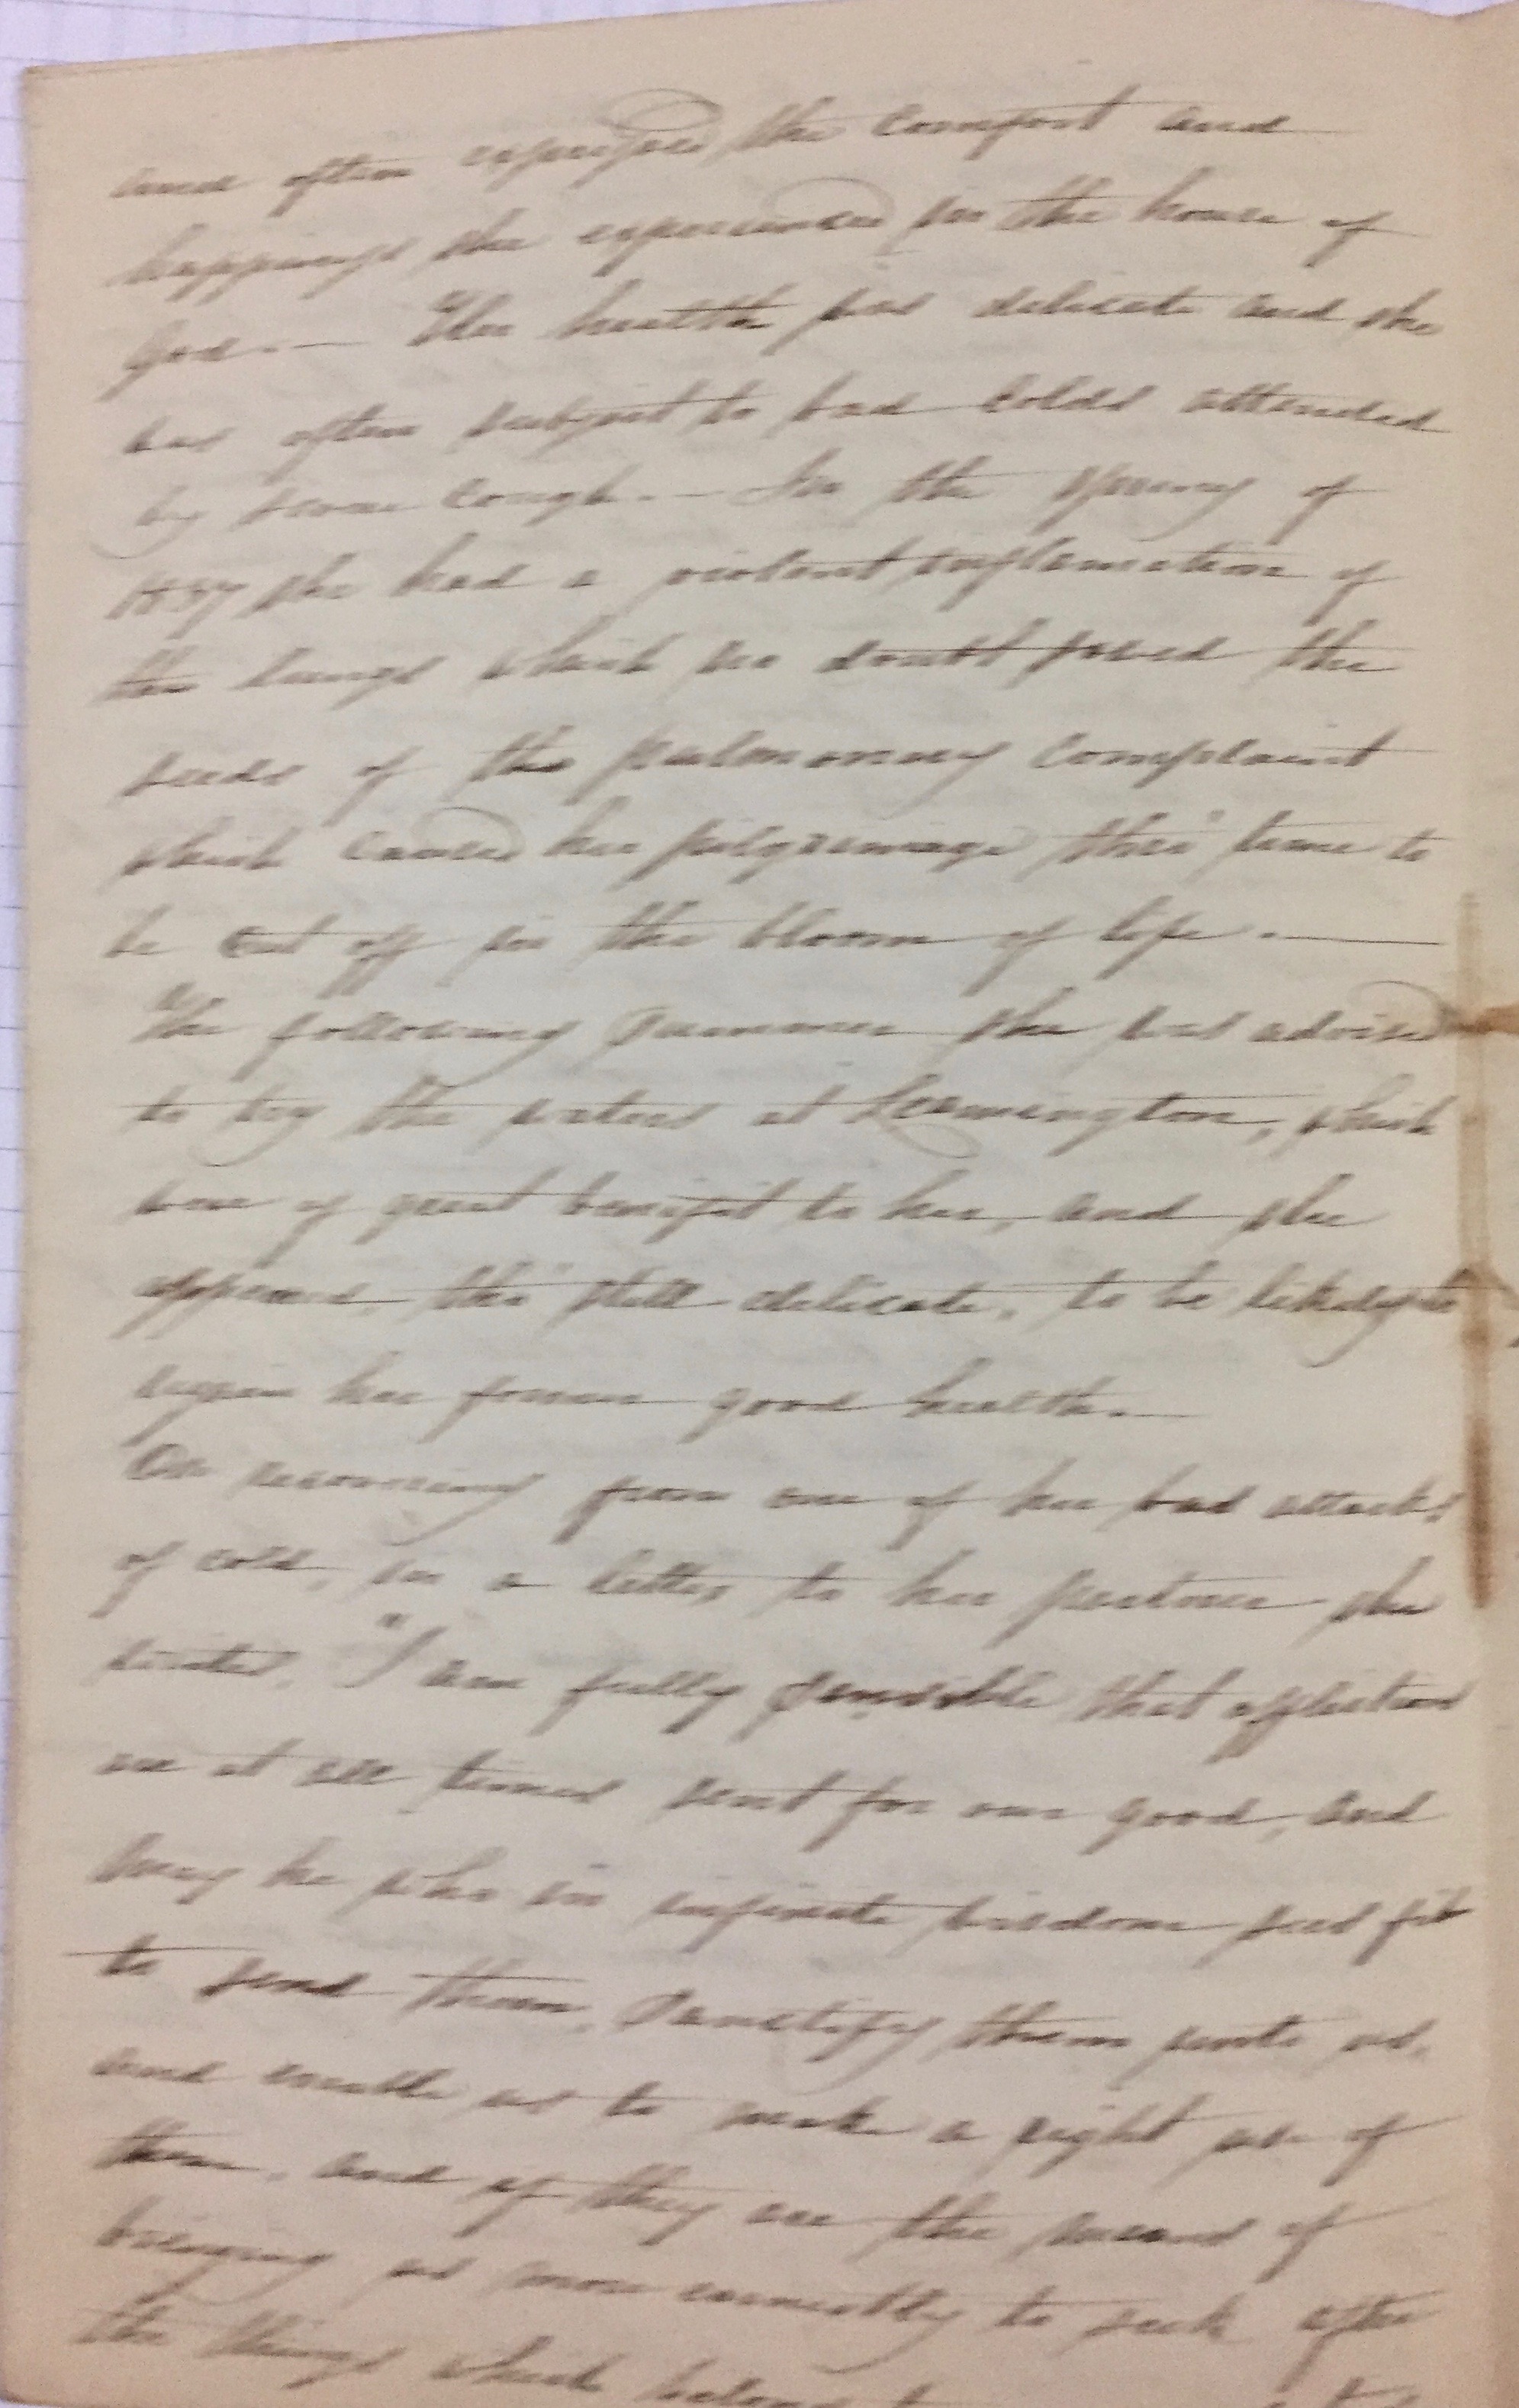 and often expressed the comfort and
happiness she experienced in the house of
God.— Her health was delicate and she
was often subject to bad colds attended
by some cough.— In the spring of
1837 she had a violent inflamation of
the lungs which no doubt sowed the
seeds of the pulmonary complaint
which caused her pilgrimage thro' time to
be cut off in the bloom of life.—
The following summer she was advised
to try the waters at Leamington, which
were of great benefit to her, and she
appeared, tho' still delicate, to be likely to
regain her former good health.—
On recovering from one of her bad attacks
of cold, in a letter to her partner she
writes, "I am fully sensible that afflictions
are at all times sent for our good, and
may he who in infinite wisdom sees fit
to send them, Sanctify them unto us,
and enable us to make a right use of
them, and if they are the means of
bringing us more earnestly to seek after
the things which belong